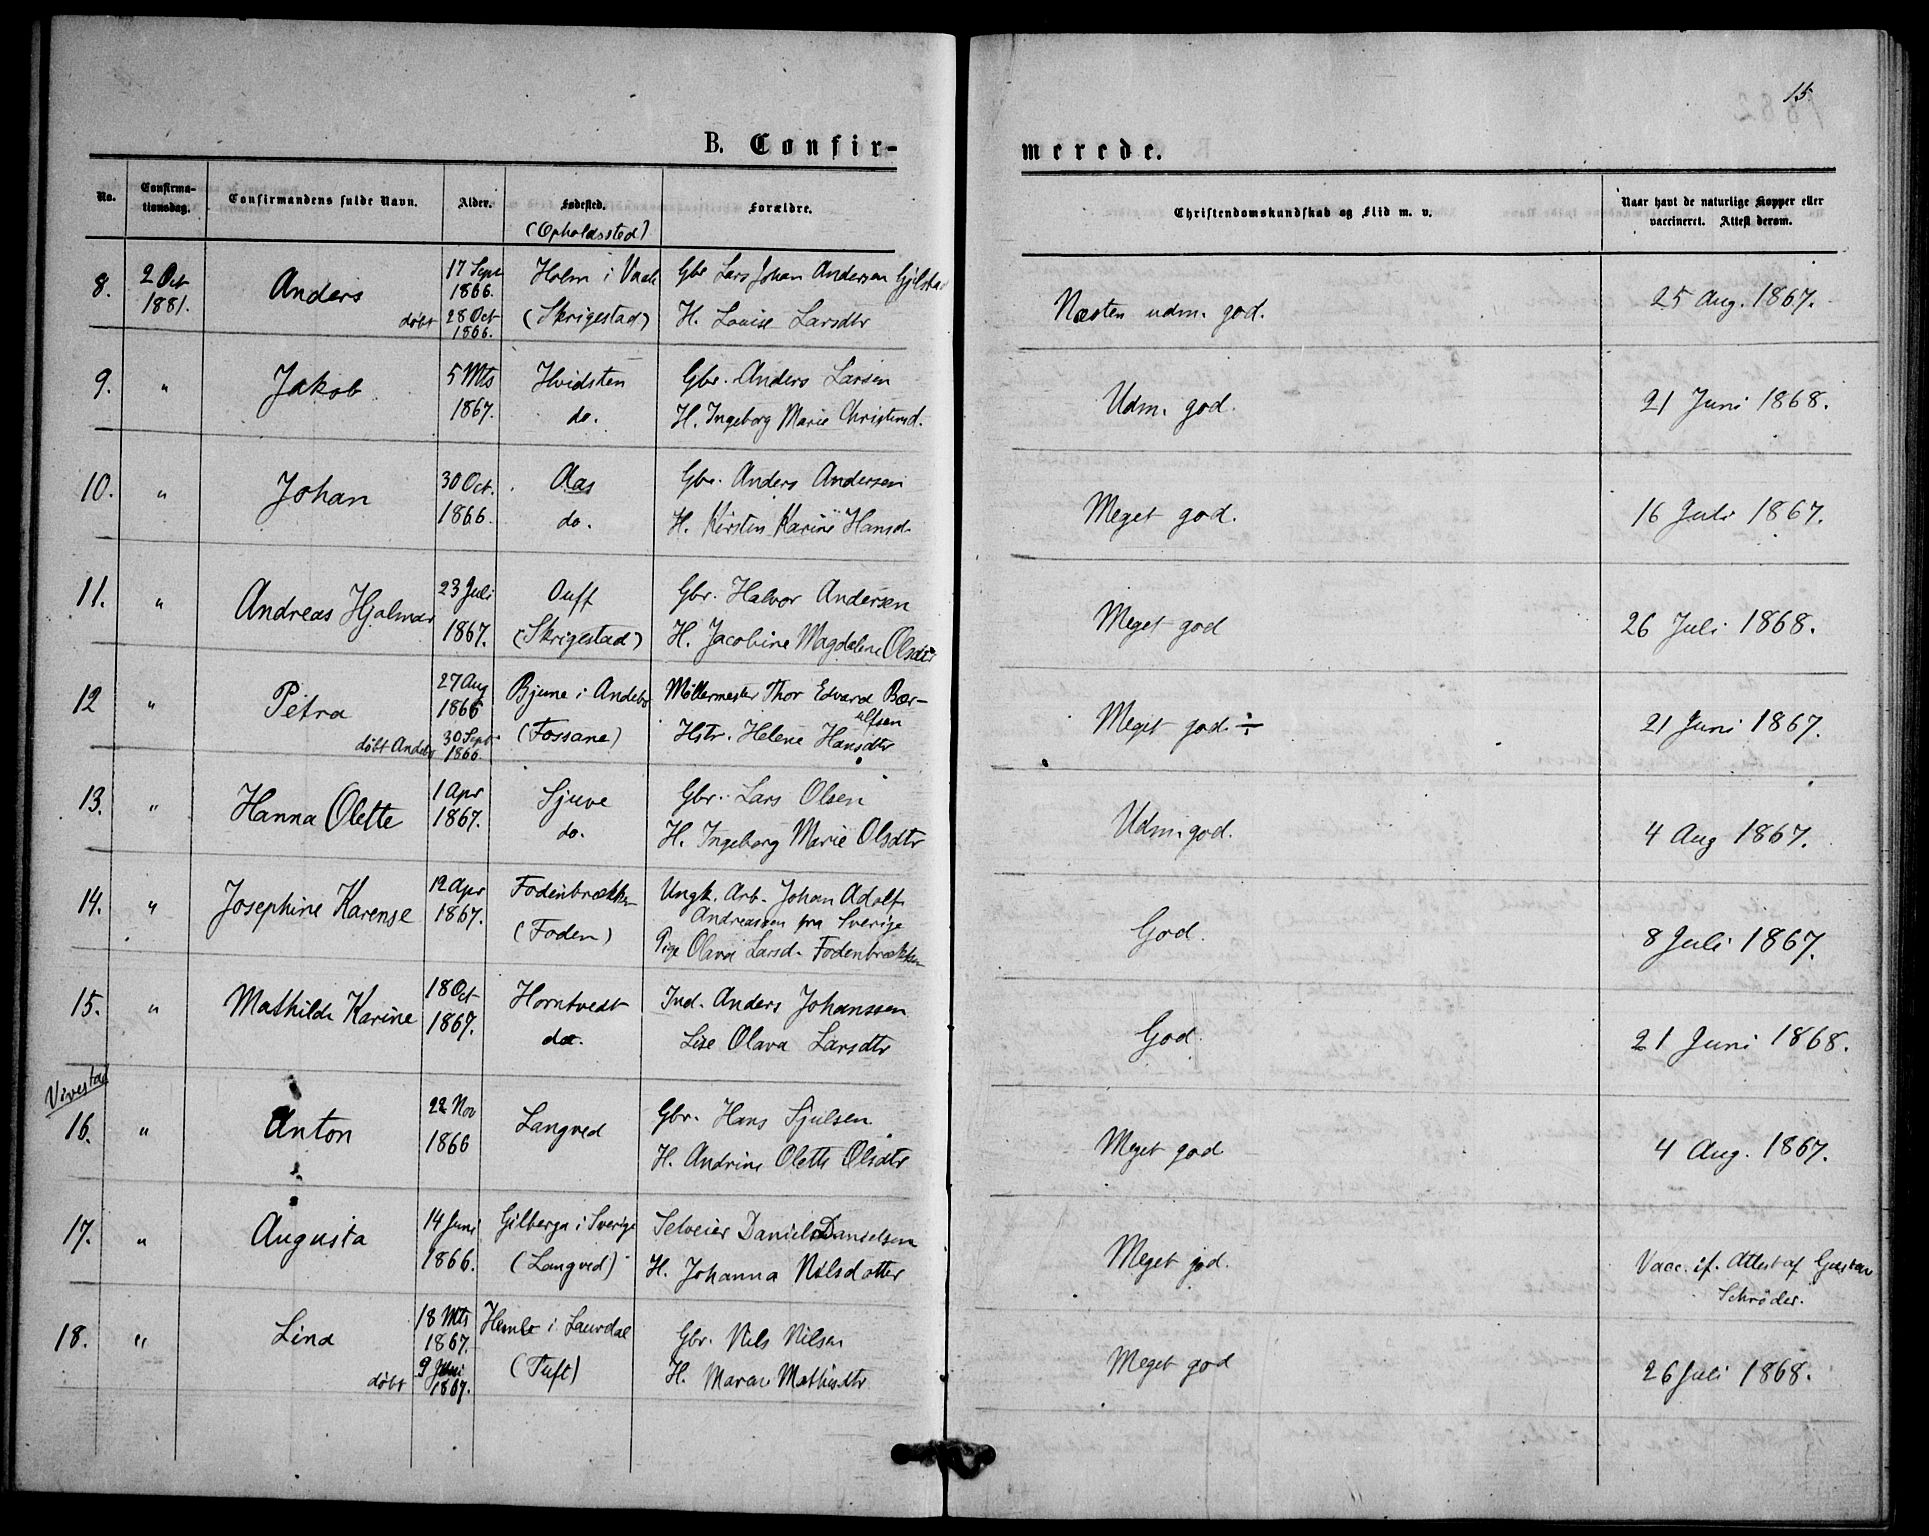 15
B. Confir-
merede.
No.
Confirma-
tionsdag.
Confirmandens fulde Navn.
Alder.
Fødested.
(Opholdssted)
Forældre.
Christendomskundskab og Flid m. v.
Naar havt de naturlige Kopper eller
vaccineret. Attest derom.
8. 2 Oct 1881. Anders døbt 17 Sept 1866. 28 Oct 1866. Holm i Vaale (Skrigestad) Gbr Lars Johan Andersen Gjelstad H. Louise Larsdtr Næsten udm. god. 25 Aug. 1867.
9. " Jakob 5 Mts 1867. Hvidsten do. Gbr. Anders Larsen H. Ingeborg Marie Christensd. Udm. god. 21 Juni 1868.
10. " Johan 30 Oct. 1866. Aas do. Gbr. Anders Andersen H. Kirsten Karine Hansd. Meget god. 16 Juli 1867.
11. " Andreas Hjalmar 23 Juli 1867. Tuft (Skrigestad) Gbr. Halvor Andersen H. Jacobine Magdalene Olsdtr Meget god 26 Juli 1868.
12 " Petra døbt Andebo 27 Aug 1866 30 Sept 1866. Bjune i Andebo (Fossane) Møllermester Thor Edvard Bær-ulfsen Hstr. Helene Hansdtr Meget god ÷ 21 Juni 1867.
13. " Hanna Olette 1 Apr 1867. Sjuve do. Gbr. Lars Olsen H. Ingeborg Marie Olsdtr Udm. god. 4 Aug 1867.
14. " Josephine Karense 12 Apr 1867. Fodenbrækken (Foden) Ungk. Arb. Johan Adolf Andreassen fra Sverige Pige Olava Larsd. Fodenbrækken God. 8 Juli 1867.
15. " Mathilde Karine 18 Oct 1867. Horntvedt do. Ind. Anders Johanssen Lise Olava Larsdtr God. 21 Juni 1868.
Vivestad
16. " Anton 22 Nov 1866 Langved Gbr. Hans Sjulsen H. Andrine Olette Olsdtr Meget god 4 Aug. 1867.
17. " Augusta 14 Juni 1866. Gilberga i Sverige (Langved) Selveier Daniel Danielsen H. Johanna Nilsdotter Meget god. Vacc. if. Attest af Gustav Schrøder.
18. " Lina døbt 18 Mts 1867. 9 Juni 1867. Hemle i Laurdal (Tuft) Gbr. Nils Nilsen H. Maren Mathisdtr Meget god 26 Juli 1868.